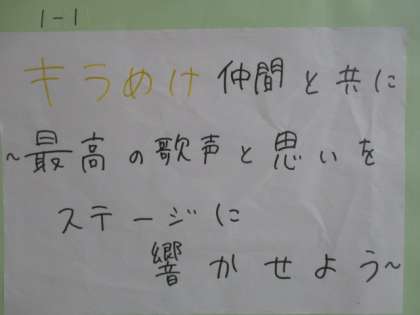 1-1
きらめけ 仲間と共に
~最高の歌声と思いを
ステージに
響かせよう~